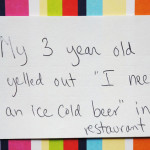 My 3 year old
yelled out "I nee
an ice cold beer" in
restaurant